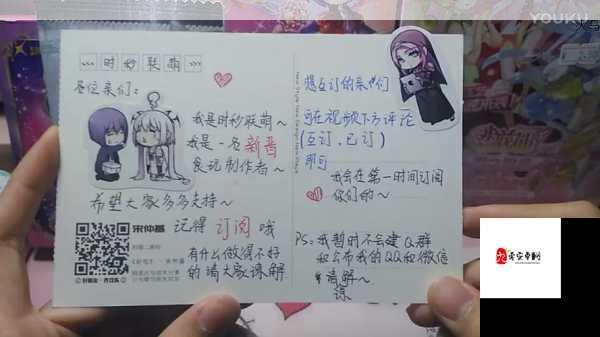 YOUKU
时秒联萌
各位亲们：
我是时秒联萌～
我是一名新晋
食玩制作者～
希望大家多多支持～
宋仲基
记得订阅哦
有什么做得不好
的请大家谅解
想互订的亲们
可在视频下方评论
(互订,已订)
即可
我会在第一时间订阅
你们的～
PS:我暂时不会建Q群
和公布我的QQ和微信
请解～
谅